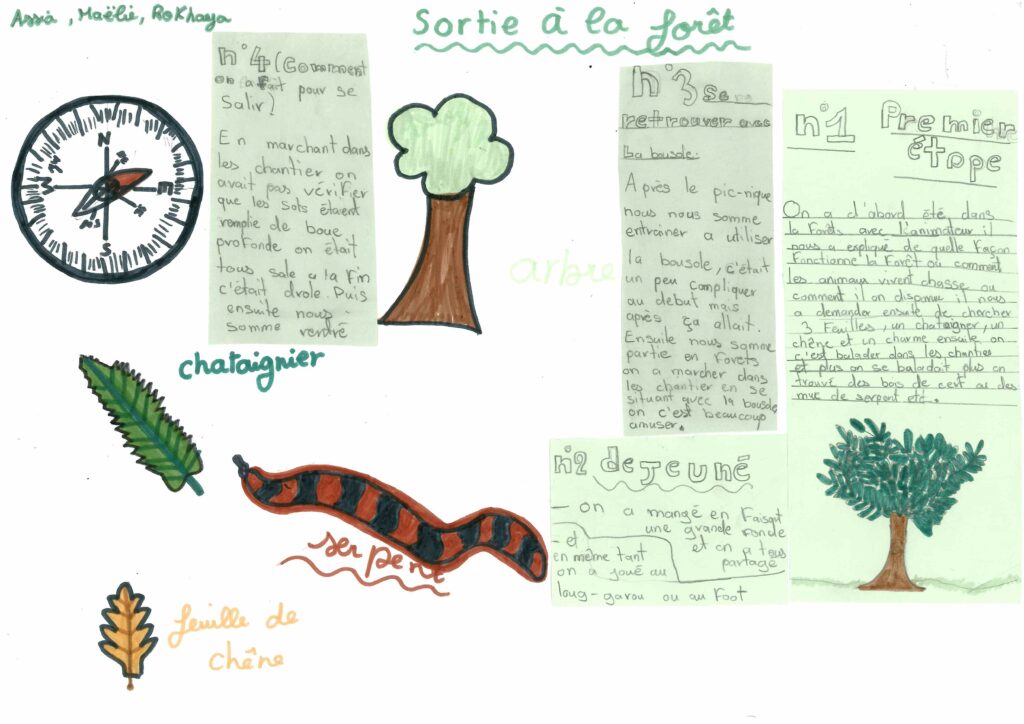 Assia, Maëlie, Rokhaya
Sortie à la forêt
n°1 Premier
étape
On a d'abord été dans
la Forêts avec l'animateur il
nous a expliqué de quelle Façon
Fonctionne la Forêt ou comment
les animaux vivent chasse ou
comment il on disparue il nous
a demander ensuite de chercher
3 Feuilles, un chataigner, un
chêne et un charme ensuite on
c'est balader dans les chantier
et plus on se baladait plus on
trouvé des bois de cerf ou des
mue de serpent etc.
n°2 dejeuné
- on a mangé en Faisait
une grande ronde
et on a tous
partagé
- et
en même tant
on a joué au
loug-garou ou au Foot
n°3 Se
retrouver avec
la bousole:
Après le pic-nique
nous nous somme
entraîner a utiliser
la bousole, c'était
un peu compliquer
au debut mais
après ça allait.
Ensuite nous somme
partie en Forets
on a marcher dans
les chantier en se
situant avec la bousole
on c'est beaucoup
amuser.
n°4 (Comment
on a fait pour se
Salir)
En marchant dans
les chantier on
avait pas vérifier
que les sols étaient
remplie de boue
profonde on était
tous sale a la Fin
c'était drole. Puis
ensuite nous
somme rentré
N
E
S
W
arbre
chataignier
serpent
feuille de
chêne